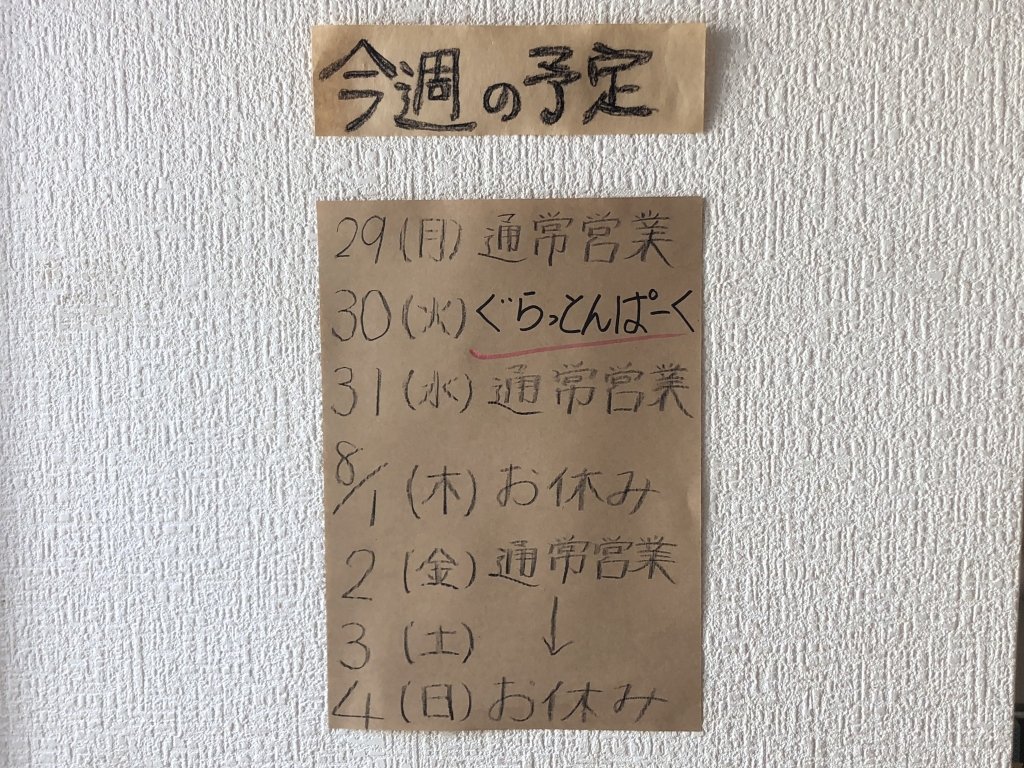 今週の予定
29(月) 通常営業
30(火) ぐらっとんぱーく
31(水) 通常営業
8/1(木) お休み
2(金) 通常営業
3(土) ↓
4(日) お休み